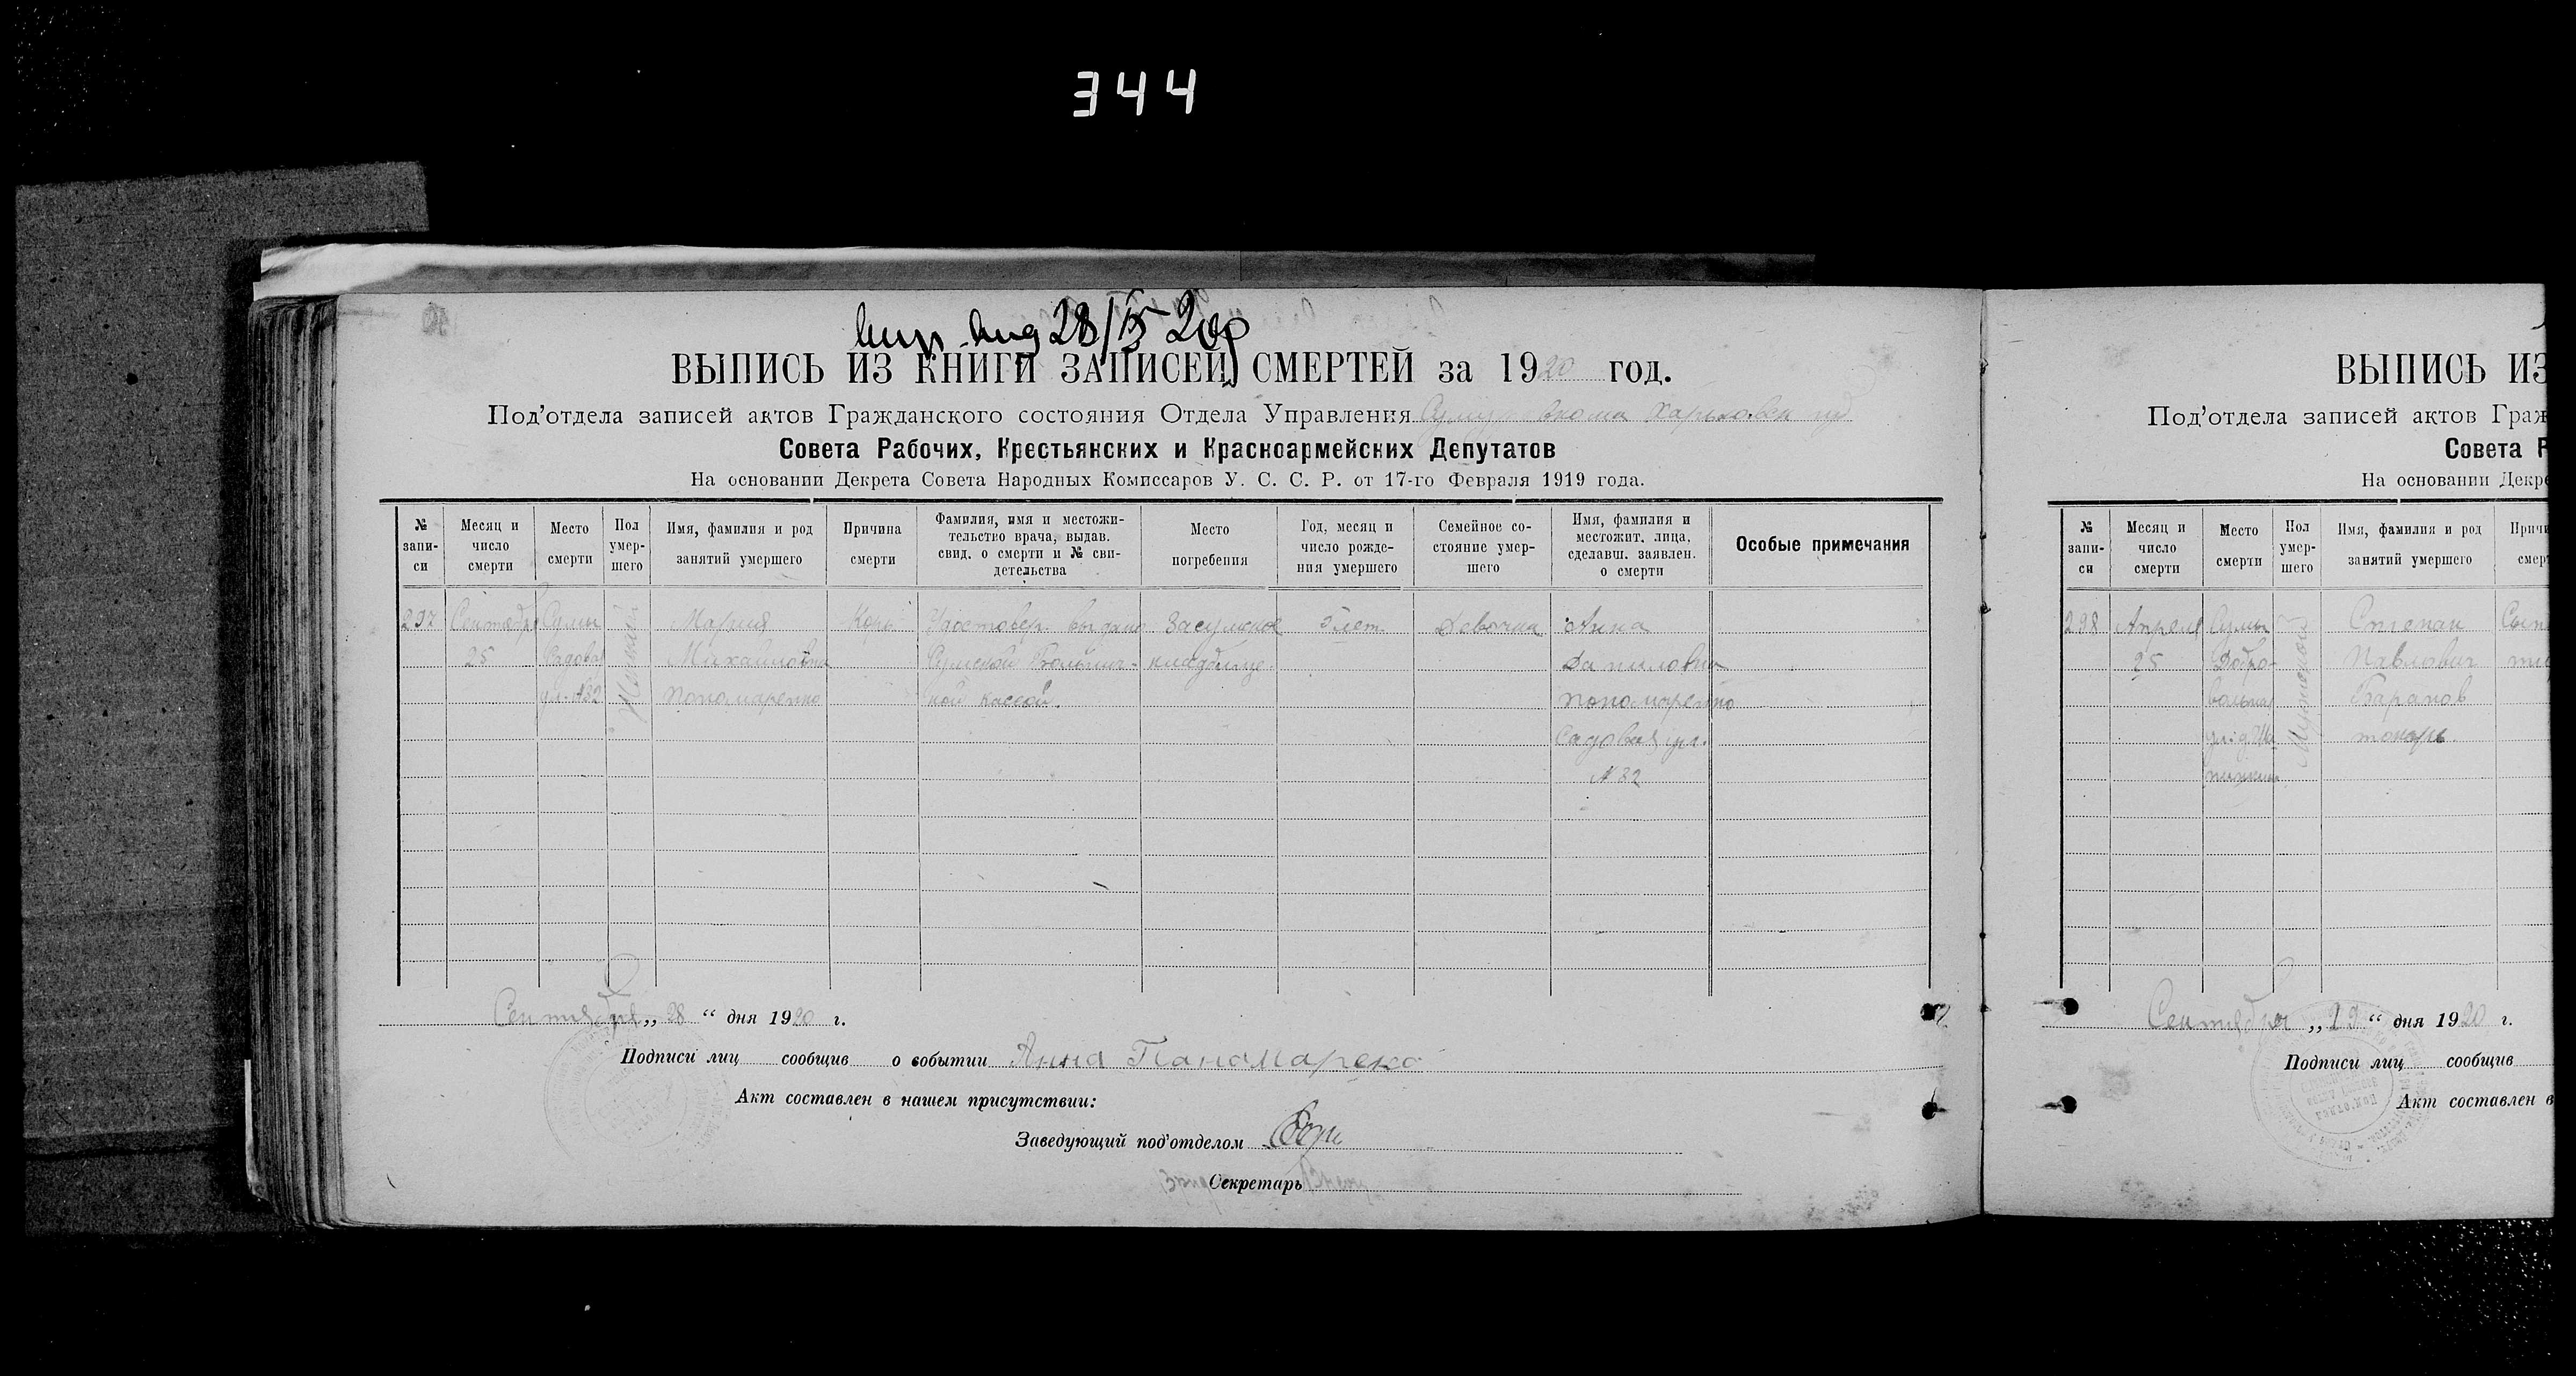 344
28/IX 20
ВЫПИСЬ ИЗ КНИГИ ЗАПИСЕЙ СМЕРТЕЙ за 1920 год.
Под'отдела записей актов Гражданского состояния Отдела Управления
Совета Рабочих, Крестьянских и Красноармейских Депутатов
На основании Декрета Совета Народных Комиссаров У. С. С. Р. от 17-го Февраля 1919 года.
№ запи-
си
Месяц и
число
смерти
Место
смерти
Пол
умер-
шего
Имя, фамилия и род
занятий умершего
Причина
смерти
Фамилия, имя и местожи-
тельство врача, выдав.
свид. о смерти и № сви-
детельства
Место
погребения
Год, месяц и
число рожде-
ния умершего
Семейное со-
стояние умер-
шего
Имя, фамилия и
местожит. лица,
сделавш. заявлен.
о смерти
Особые примечания
297
Сентября
25
Сумы
Садовая
ул. №82
Женский
Мария
Михайловна
Пономаренко
Корь
Удостовер. выдано
Сумской Больнич-
ной кассой.
Засумское
кладбище.
лет
Девочка
Анна
Даниловна
Пономаренко
Садовая ул.
№82
Сентября „ 28 “ дня 1920 г.
Подписи лиц сообщив о событии Анна Панамарено
Акт составлен в нашем присутствии:
Заведующий под'отделом
Секретарь
ВЫПИСЬ ИЗ
Под'отдела записей актов Граж
Совета Р
На основании Декре
№ запи-
си
Месяц и
число
смерти
Место
смерти
Пол
умер-
шего
Имя, фамилия и род
занятий умершего
Причи
смер
298
Апреля
25
Сумы
Добро-
вольная
Мужской
Степан
Павлович
Баранов
токарь
Сып
Сентября „ 29 “ дня 1920 г.
Подписи лиц сообщив
Акт составлен в